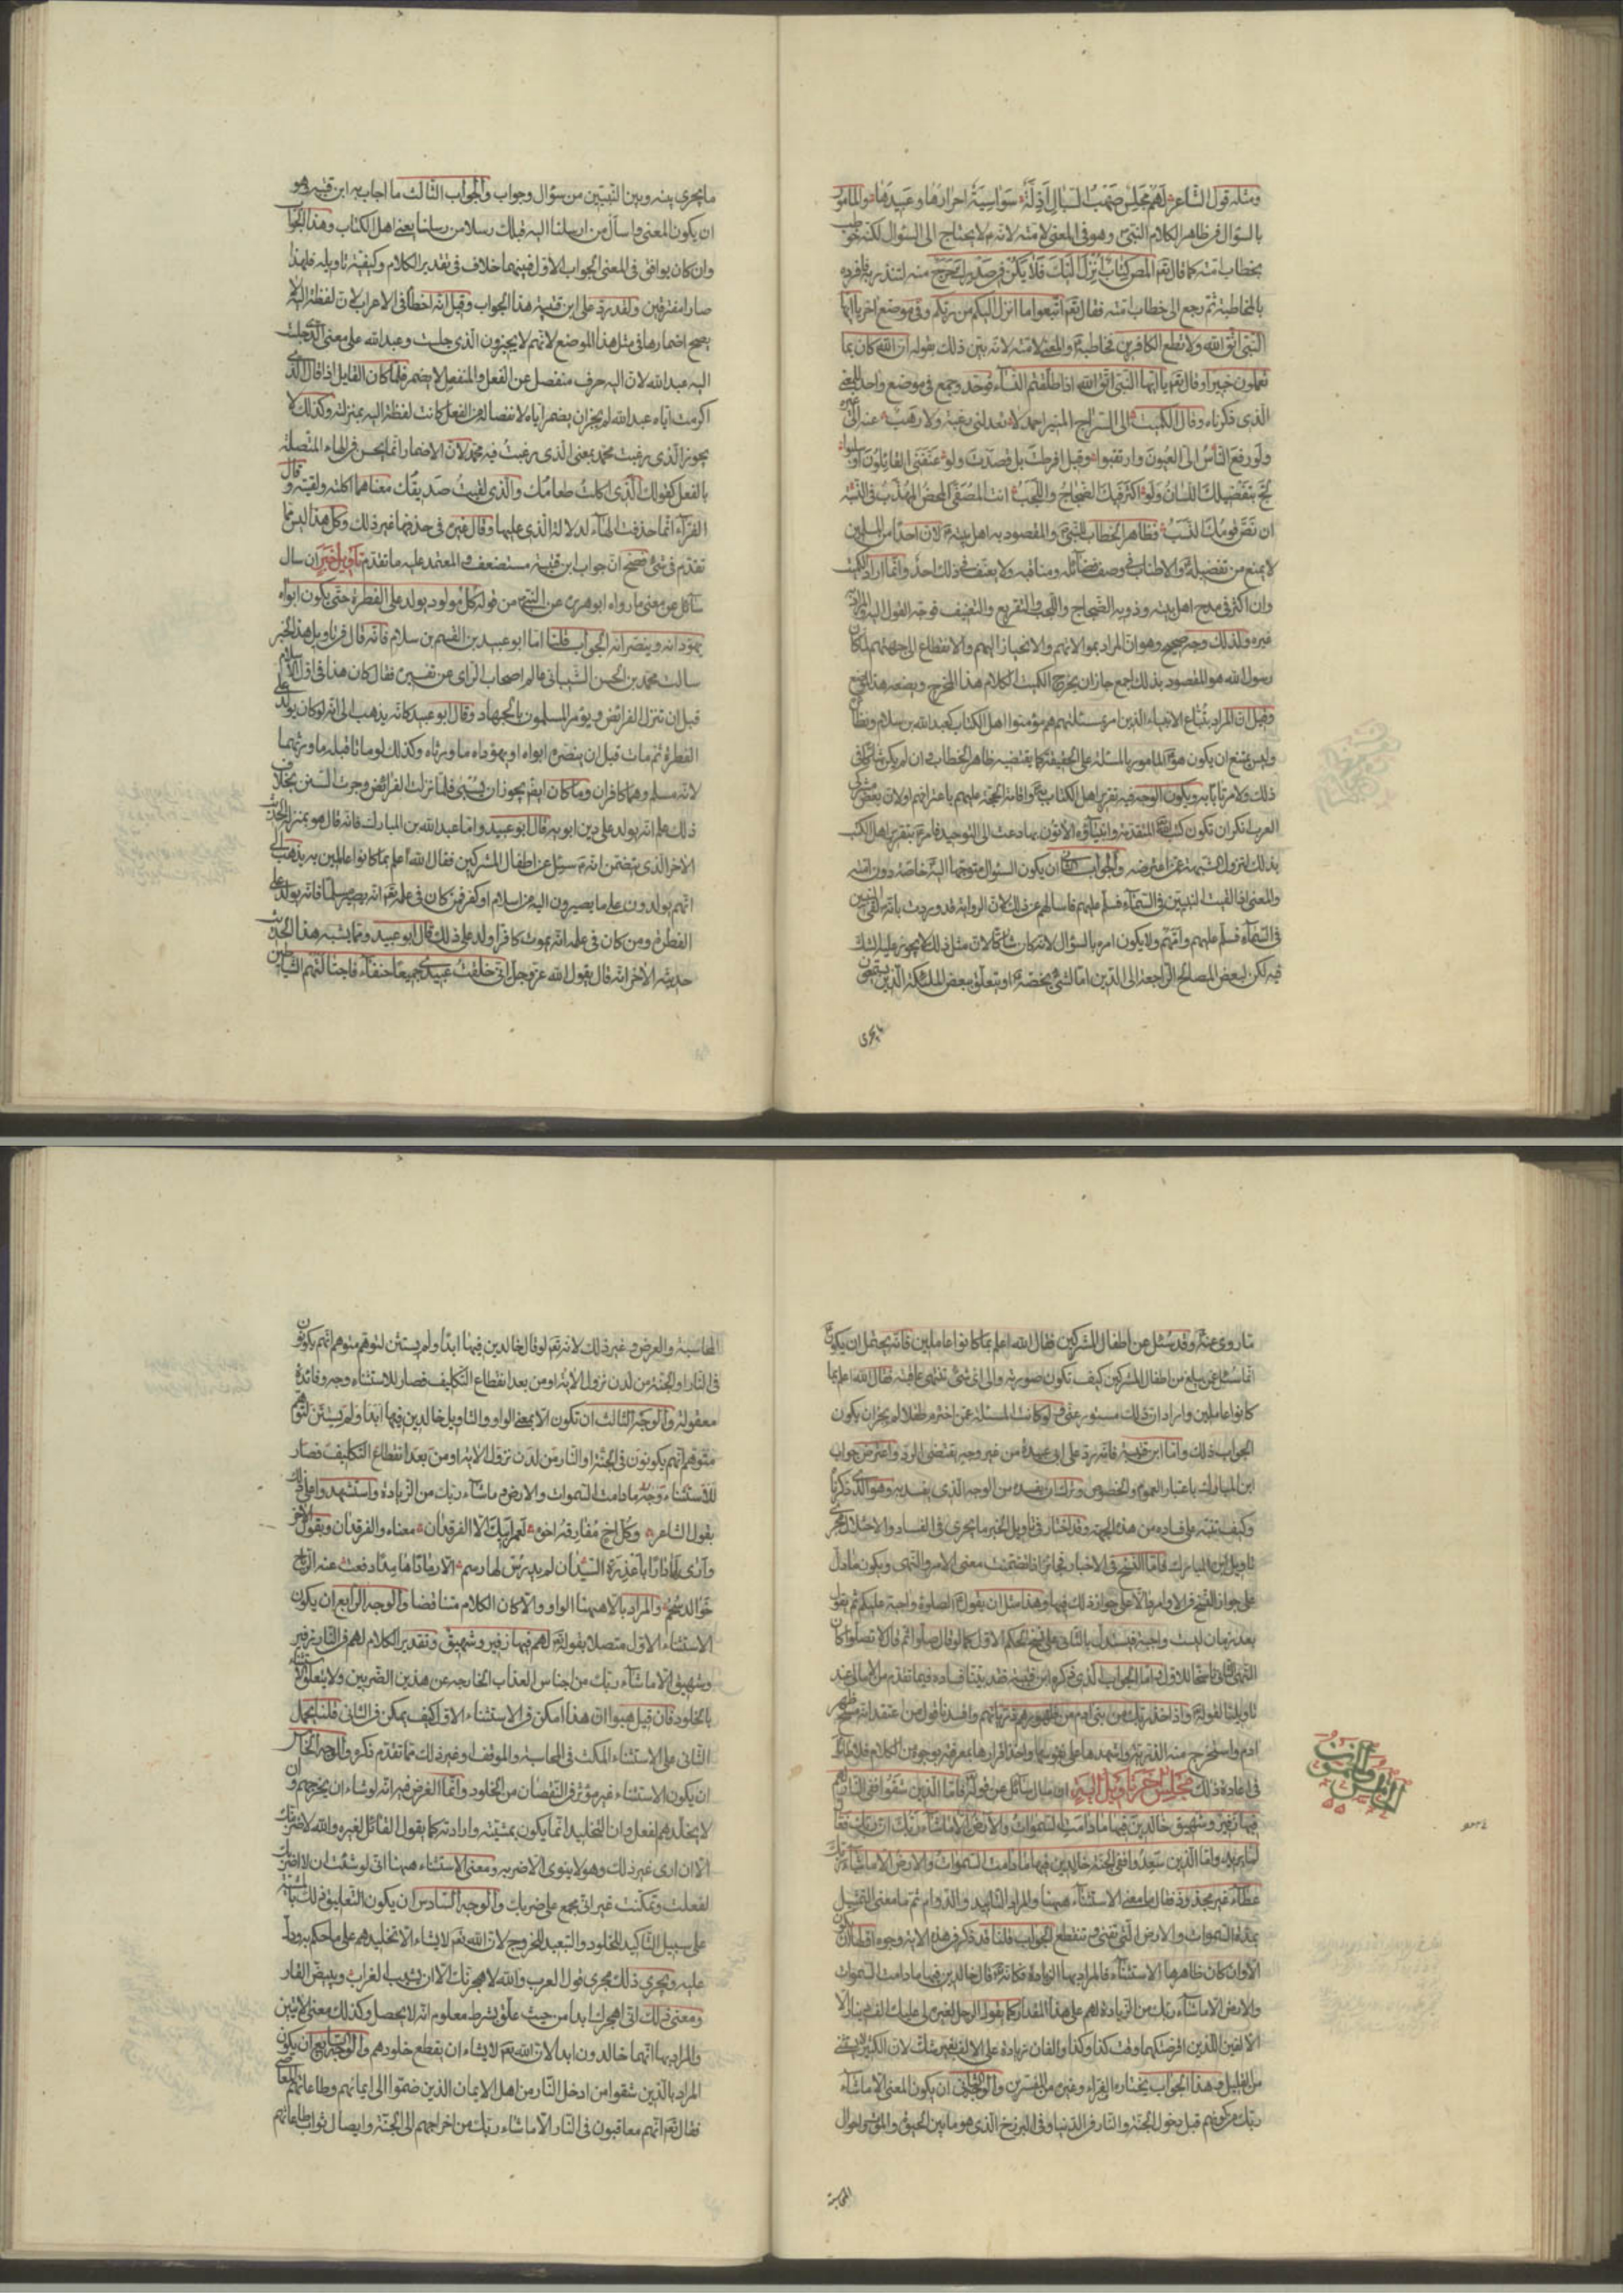 ومثله قول الشاعر لهم مجلس صهب السبال اذلة سواسية احرارها وعبيدها والمامور
بالسؤال في ظاهر الكلام النبي وهو في المعنى لامته لانه لا يحتاج الى السؤال لكنه خوطب
بخطاب امته كما قال تعم المص كتاب انزل اليك فلا يكن في صدرك حرج منه لتنذر به فافرده
بالمخاطبة ثم رجع الى خطاب امته فقال تعم اتبعوا ما انزل اليكم من ربكم وفي موضع اخر يا ايها
النبي اتق الله ولا تطع الكافرين مخاطبة والمعنى لامته لانه بين ذلك بقوله ان الله كان بما
تعملون خبيرا وقال تعم يا ايها النبي اذا طلقتم النساء فوحد وجمع في موضع واحد للمعنى
الذي ذكرناه وقال الكميت الى السراج المنير احمد لا تعدلني رغبة ولا رهب عنه الى غيره
ولو رفع الناس الي العيون وارتقبوا وقيل افرطت بل قصدت ولو عنفني القائلون او ثلبوا
لج بتفضيلك اللسان ولو اكثر فيك الضجاج واللجب انت المصفى المحض المهذب في النسبة
ان نص قومك النسب فظاهر الخطاب للنبي والمقصود به اهل بيته لان احدا من المسلمين
لا يمتنع من تفضيله والاطناب في وصف فضائله ومناقبه ولا يعنف في ذلك احد وانما اراد الكميت
وان اكثر في مدح اهل بيته وذويه الضجاج واللجب والتقريع والتعنيف فوجه القول اليه والمراد
غيره ولذلك وجه صحيح وهو ان المراد بموالاتهم والانحياز اليهم والانقطاع الى حبهم لما كان
رسول الله هو المقصود بذلك اجمع جاز ان يخرج الكميت الكلام هذا المخرج ويضعه هذا الموضع
وقيل ان المراد بتباع الانبياء الذين امر بمسئلتهم هم مؤمنوا اهل الكتاب كعبد الله بن سلام ونظرائه
وليس يمتنع ان يكون هو المامور بالمسئلة على الحقيقة كما يقتضيه ظاهر الخطاب وان لم يكن شاكا في
ذلك ولا مرتابا به ويكون الوجه فيه تقرير اهل الكتاب به واقامة الحجة عليهم باعترافهم او لان بعض مشركي
العرب انكر ان تكون كتب الله المتقدمة وانبياؤه الاتون بها دعت الى التوحيد فامر بتقرير اهل الكتب
بذلك لتزول الشبهة عمن اعترضته والجواب الثاني ان يكون السؤال متوجها اليه خاصة دون امته
والمعنى اذا لقيت النبيين في السماء فسلهم عن ذلك لان الرواية قد وردت بانه لقي النبيين
في السماء فسلم عليهم وامهم ولا يكون امره بالسؤال لانه كان شاكا لان مثل ذلك لا يجوز عليه الشك
فيه لكن لبعض المصالح الراجعة الى الدين اما لشيء يخصه او يتعلق ببعض الملائكة الذين يستمعون
ما يجري
ما يجري بينه وبين النبيين من سؤال وجواب والجواب الثالث ما اجاب به ابن قتيبة وهو
ان يكون المعنى واسأل من ارسلنا اليه قبلك رسلا من رسلنا يعني اهل الكتاب وهذا الجواب
وان كان يوافق في المعنى الجواب الاول فبينهما خلاف في تقدير الكلام وكيفية تاويله فلهذا
صارا مفترقين ولقد رد على ابن قتيبة هذا الجواب وقيل انه اخطأ في الاعراب لان لفظة اليه لا
يصح اضمارها في مثل هذا الموضع لانهم لا يجيزون الذي جلست وعبد الله على معنى الذي جلست
اليه عبد الله لان اليه حرف منفصل عن الفعل والمنفصل لا يضمر فلما كان القايل اذا قال الذي
اكرمت اياه عبد الله لم يجز ان يضمر اياه لانفصاله من الفعل كانت لفظة اليه بمنزلته وكذلك لا
يجوز الذي رغبت محمد بمعنى الذي رغبت فيه محمد لان الاضمار انما يحسن في الهاء المتصلة
بالفعل كقولك الذي اكلت طعامك والذي لقيت صديقك معناهما اكلته ولقيته وقال
الفراء انما حذفت الهاء لدلالة الذي عليها وقال غيره في حذفها غير ذلك وكل هذا ليس مما
تقدم في شيء فصح ان جواب ابن قتيبة مستضعف والمعتمد عليه ما تقدم تاويل خبر ان سال
سائل عن معنى ما رواه ابو هريرة عن النبي من قوله كل مولود يولد على الفطرة حتى يكون ابواه
يهودانه وينصرانه الجواب قلنا اما ابو عبيد بن القسم بن سلام فانه قال في تاويل هذا الخبر
سالت محمد بن الحسن الشيباني عن تفسيره فقال كان هذا في اول الاسلام
قبل ان تنزل الفرائض ويؤمر المسلمون بالجهاد وقال ابو عبيد كانه يذهب الى انه لو كان يولد على
الفطرة ثم مات قبل ان ينصره ابواه او يهوداه ما ورثاه وكذلك لو ماتا قبله ما ورثهما
لانه مسلم وهما كافران وما كان ايضا يجوز ان يسبى فلما نزلت الفرائض وجرت السنن بخلاف
ذلك علم انه يولد على دين ابويه قال ابو عبيد واما عبد الله بن المبارك فانه قال هو بمنزلة الحديث
الاخر الذي يتضمن انه سئل عن اطفال المشركين فقال الله اعلم بما كانوا عاملين به يذهب الى
انهم يولدون على ما يصيرون اليه من اسلام او كفر فمن كان في علمه تعم انه يصير مسلما فانه يولد على
الفطرة ومن كان في علمه انه يموت كافرا ولد على ذلك قال ابو عبيد ومما يشبه هذا الحديث
حديثه الاخر انه قال يقول الله عز وجل اني خلقت عبيدي جميعا حنفاء فاجتالتهم الشياطين
ما روي عنه وقد سئل عن اطفال المشركين فقال الله اعلم بما كانوا عاملين فانه يحتمل ان يكون
انما سئل عمن بلغ من اطفال المشركين كيف تكون صورته والى اي شيء تنتهي عاقبته فقال الله اعلم بما
كانوا عاملين واراد ان ذلك مستور عني ولو كانت المسئلة عمن اخترم طفلا لم يجز ان يكون
الجواب ذلك واما ابن قتيبة فانه رد على ابي عبيدة من غير وجه يقتضي الرد واعترض جواب
ابن المبارك باعتبار العموم والخصوص وترك ان يفسده من الوجه الذي يفسد به وهو الذي ذكرناه
وكيف نبه على فساده من هذه الجهة وقد اختار في تاويل الخبر ما يجري في الفساد والاختلال مجرى
تاويل ابن المبارك فاما النسخ في الاخبار فجائز اذا تضمنت معنى الامر والنهي ويكون ما دل
على جواز النسخ في الاوامر دالا على جواز ذلك فيها وهذا مثل ان يقول الصلوة واجبة عليكم ثم يقول
بعد زمان ليست واجبة فيستدل بالثاني على نسخ الحكم الاول كما لو قال صلوا ثم قال لا تصلوا كان
النهي الثاني ناسخا للاول فاما الجواب الذي ذكره ابن قتيبة فقد بينا فساده فيما تقدم من الامالي عند
تاويلنا لقوله واذ اخذ ربك من بني ادم من ظهورهم ذرياتهم وافسدنا قول من اعتقد انه مسح ظهر
ادم واستخرج منه الذرية واشهدها على نفوسها واخذ اقرارها بمعرفته بوجوه من الكلام فلا طائل
في اعادة ذلك مجلس اخر تاويل اية ان سال سائل عن قوله فاما الذين شقوا ففي النار لهم
فيها زفير وشهيق خالدين فيها ما دامت السموات والارض الا ما شاء ربك ان ربك فعال
لما يريد واما الذين سعدوا ففي الجنة خالدين فيها ما دامت السموات والارض الا ما شاء ربك
عطاء غير مجذوذ فقال ما معنى الاستثناء هيهنا والمراد التابيد والدوام ثم ما معنى التمثيل
بمدة السموات والارض التي تفنى وتنقطع الجواب قلنا قد ذكر في هذه الاية وجوه اولها ان يكون
الا وان كان ظاهرها الاستثناء فالمراد بها الزيادة فكانه قال خالدين فيها ما دامت السموات
والارض الا ما شاء ربك من الزيادة لهم على هذا المقدار كما يقول الرجل لغيره لي عليك الف دينار الا
الالفين اللذين اقرضتكهما وقت كذا وكذا والفان زيادة على الالف بغير شك لان الكثير لا يستثنى
من القليل وهذا الجواب يختاره الفراء وغيره من المفسرين والوجه الثاني ان يكون المعنى الا ما شاء
ربك من كونهم قبل دخول الجنة والنار في الدنيا وفي البرزخ الذي هو ما بين الحيوة والموت واحوال
المحاسبة
المجلس الثالث والثلثون
المحاسبة والعرض وغير ذلك لانه تعم لو قال خالدين فيها ابدا ولم يستثن لتوهم متوهم انهم يكونون
في النار والجنة من لدن نزول الاية او من بعد انقطاع التكليف فصار للاستثناء وجه وفائدة
معقولة والوجه الثالث ان تكون الا بمعنى الواو والتاويل خالدين فيها ابدا ولم يستثن لتوهم
متوهم انهم يكونون في الجنة او النار من لدن نزول الاية او من بعد انقطاع التكليف فصار
للاستثناء وجه ما دامت السموات والارض وما شاء ربك من الزيادة واستشهد على ذلك
بقول الشاعر وكل اخ مفارقه اخوه لعمر ابيك الا الفرقدان معناه والفرقدان وبقول الاخر
وارى لها دارا باغدرة السيدان لم يدرس لها رسم الا رمادا هامدا دفعت عنه الرياح
خوالد سحم والمراد بالا هيهنا الواو والا كان الكلام متناقضا والوجه الرابع ان يكون
الاستثناء الاول متصلا بقوله لهم فيها زفير وشهيق وتقدير الكلام لهم في النار زفير
وشهيق الا ما شاء ربك من اجناس العذاب الخارجة عن هذين الضربين ولا يتعلق الاستثناء
بالخلود فان قيل هبوا ان هذا امكن في الاستثناء الاول كيف يمكن في الثاني قلنا يحمل
الثاني على الاستثناء المكث في المحاسبة والموقف او غير ذلك مما تقدم ذكره والوجه الخامس
ان يكون الاستثناء غير مؤثر في النقصان من الخلود وانما الغرض فيه انه لو شاء ان يخرجهم وان
لا يخلدهم لفعل وان التخليد انما يكون بمشيته وارادته كما يقول القائل لغيره والله لاضربنك
الا ان ارى غير ذلك وهو لا ينوي الا ضربه ومعنى الاستثناء هيهنا اني لو شئت ان لا اضربك
لفعلت وتمكنت غير اني مجمع على ضربك والوجه السادس ان يكون التعليق في ذلك بالمشية
على سبيل التاكيد للخلود والتبعيد للخروج لان الله تعم لا يشاء الا تخليدهم على ما حكم به ودل
عليه ويجري ذلك مجرى قول العرب والله لاهجرنك الا ان يشيب الغراب ويبيض القار
ومعنى ذلك اني اهجرك ابدا من حيث علق بشرط معلوم انه لا يحصل وكذلك معنى الايتين
والمراد بها انهما خالدون ابدا لان الله تعم لا يشاء ان يقطع خلودهم والوجه السابع ان يكون
المراد بالذين شقوا من ادخل النار من اهل الايمان الذين ضموا الى ايمانهم وطاعاتهم المعاصي
فقال تعم انهم معاقبون في النار الا ما شاء ربك من اخراجهم الى الجنة وايصال ثواب طاعاتهم